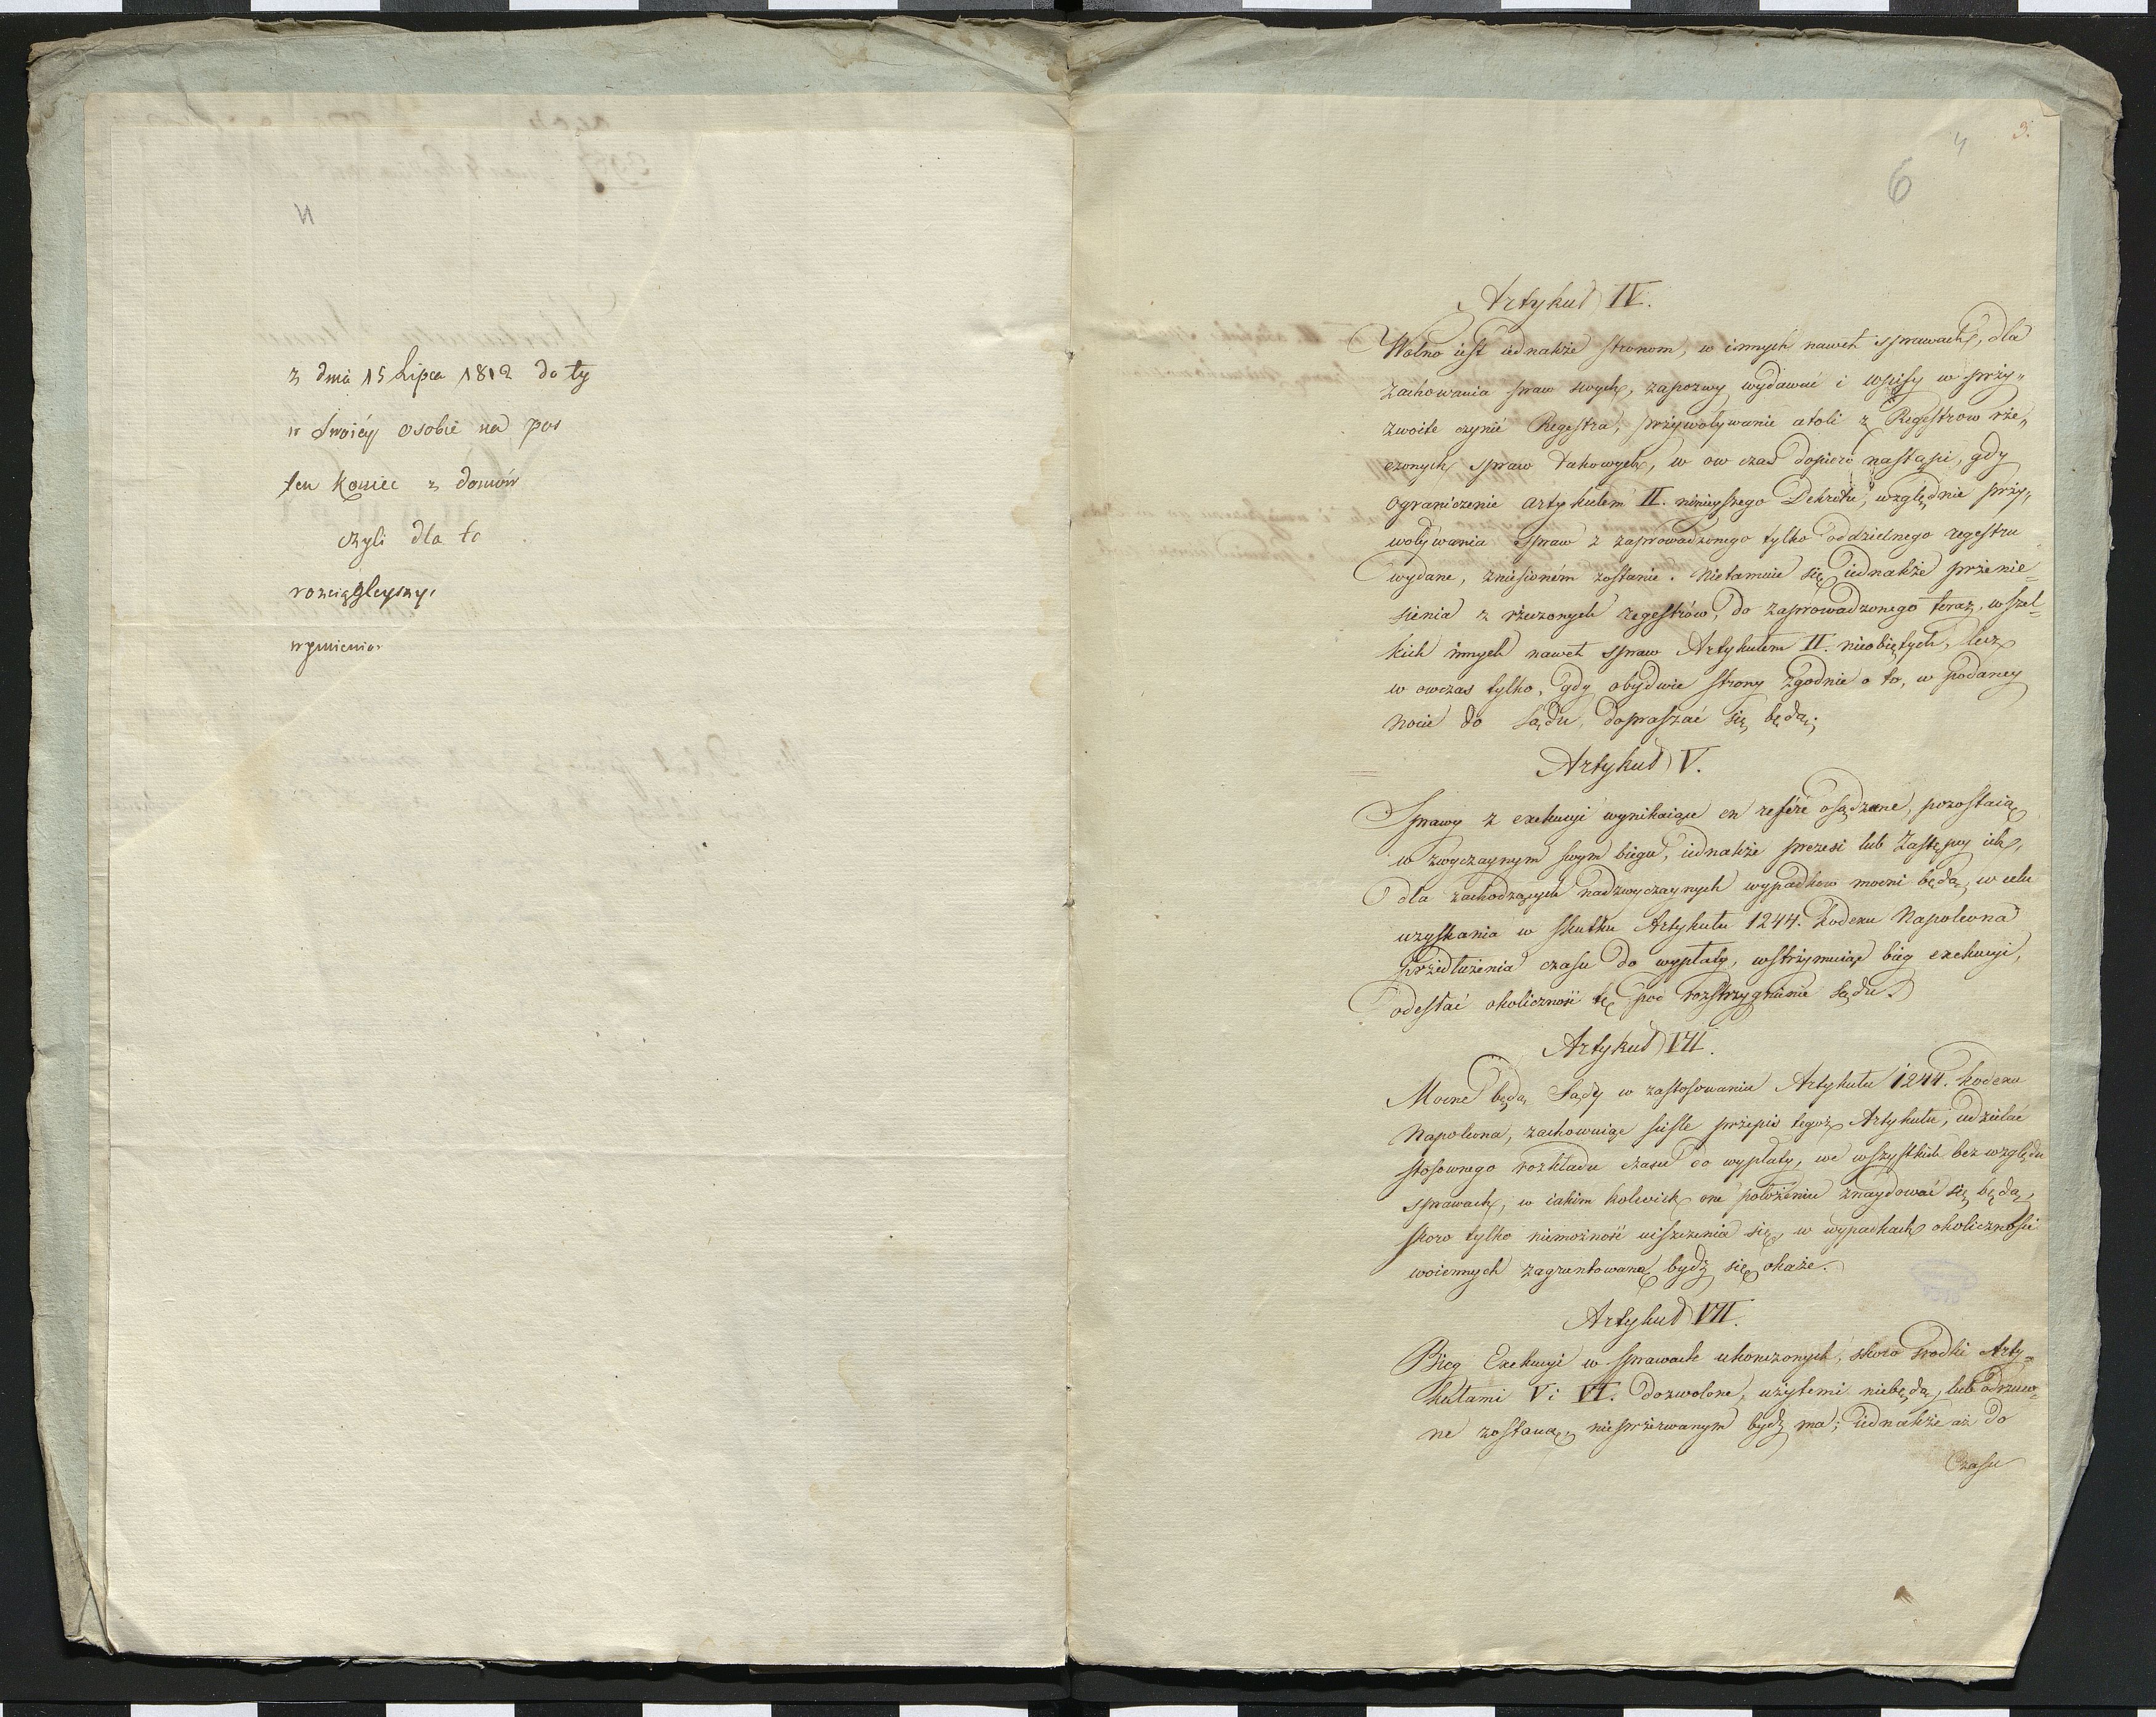 z dnia 15 Lipca 1812 do ty
w Swoiéy osobie na pos
ten koniec z domów
czyli dla to
rozciągleyszy
wymienio
3.
4
6
Artykuł IV.
Wolno iest iednakże stronom, w innych nawet sprawach, dla
zachowania praw swych, zapozwy wydawać i wpisy w przy„
zwoite czynić Regestra, przywoływanie atoli z Regestrow rze„
czonych spraw takowych, w ow czas dopiero nastąpi, gdy
ograniczenie artykułem II. ninieyszego Dekretu, względnie przy„
woływania Spraw z zaprowadzonego tylko oddzielnego regestru
wydane, zniesioném zostanie. Nietamuie się iednakże przenie„
sienia z rzeczonych regestrów, do zaprowadzonego teraz, wszel„
kich innych nawet spraw Artykułem II. nieobiętych, lecz
w owczas tylko, gdy obydwie strony zgodnie o to, w podaney
nocie do Sądu, dopraszać się będą;
Artykuł V.
Sprawy z exekucyi wynikaiące en refére osądzane, pozostaią
w zwyczaynym swym biegu, iednakże prezesi lub Zastępcy ich,
dla zachodzących nadzwyczaynych wypadkow mocni będą, w celu
uzyskania w skutku Artykułu 1244. Kodexu Napoleona
przedłużenia czasu do wypłaty, wstrzymuiąc bieg exekucyi,
odesłać okoliczność tę pod rozstrzygnienie Sądu.
Artykuł VI.
Mocne będą Sądy w zastosowaniu Artykułu 1244. Kodexu
Napoleona, zachowuiąc ściśle przepis tegoż Artykułu, udzielać
stosownego rozkładu czasu do wypłaty, we wszystkich bez względu
sprawach, w iakim kolwiek one położeniu znaydować się będą,
skoro tylko niemożność uiszczenia się, w wypadkach okoliczności
woiennych zagruntowaną bydź się okaże.
Artykuł VII.
Bieg Exekucyi w sprawach ukończonych, skoro środki Arty„
kułami V i VI. dozwolone, użytemi niebędą, lub odrzuco„
ne zostaną, nieprzerwanym bydź ma; iednakże aż do
Czasu